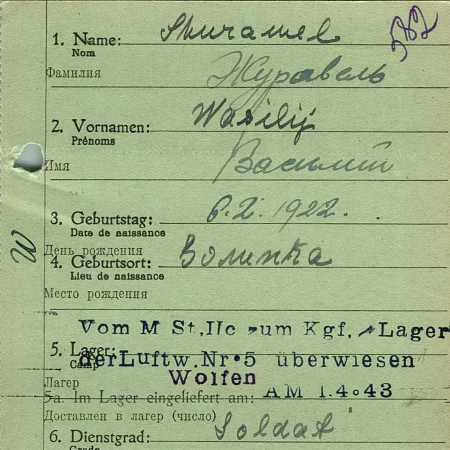 582
1. Name: Shurawel
Nom
Фамилия Журавель
2. Vornamen: Wasilij
Prénoms
Имя Василий
3. Geburtstag: 6.X.1922.
Date de naissance
День рождения
W
4. Geburtsort: Волинка
Lieu de naissance
Место рождения
Vom M St, IIc zum Kgf, Lager
5. Lager: der Luftw. Nr. 5 überwiesen
Camp
Wolfen
Лагер
5a. Im Lager eingeliefert am: AM 1.4.43
Доставлен в лагер (число)
6. Dienstgrad: Soldat
Grade